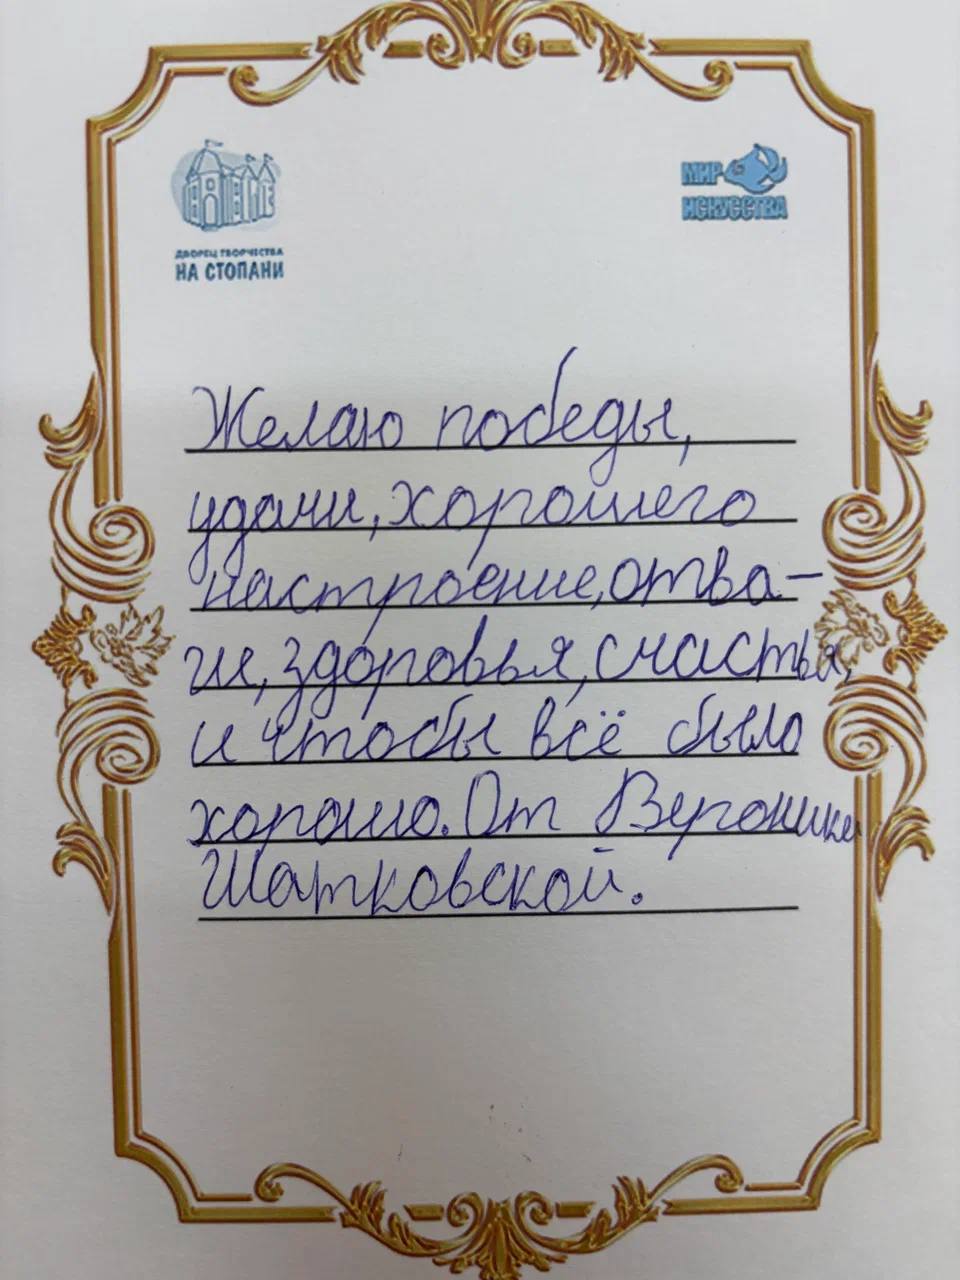 ДВОРЕЦ ТВОРЧЕСТВА
НА СТОПАНИ
МИР
ИСКУССТВА
Желаю победы,
удачи, хорошего
настроение, отва-
ги, здоровья, счастья,
и чтобы всё было
хорошо. От Вероники
Шатковской.